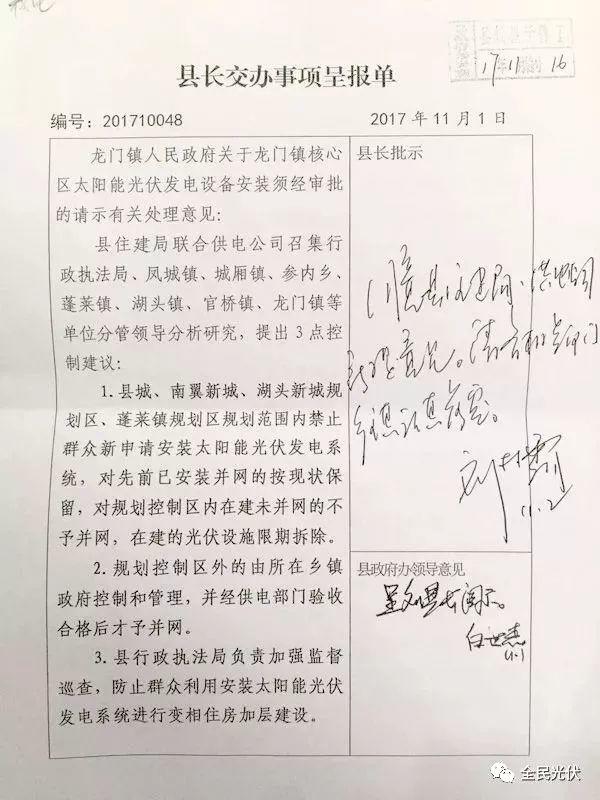 县长交办事项呈报单
编号：201710048
2017 年 11 月 1 日
龙门镇人民政府关于龙门镇核心
区太阳能光伏发电设备安装须经审批
的请示有关处理意见：
县住建局联合供电公司召集行
政执法局、凤城镇、城厢镇、参内乡、
蓬莱镇、湖头镇、官桥镇、龙门镇等
单位分管领导分析研究，提出 3 点控
制建议：
1. 县城、南翼新城、湖头新城规
划区、蓬莱镇规划区规划范围内禁止
群众新申请安装太阳能光伏发电系
统，对先前已安装并网的按现状保
留，对规划控制区内在建未并网的不
予并网，在建的光伏设施限期拆除。
2. 规划控制区外的由所在乡镇
政府控制和管理，并经供电部门验收
合格后才予并网。
3. 县行政执法局负责加强监督
巡查，防止群众利用安装太阳能光伏
发电系统进行变相住房加层建设。
县长批示
11.2
县政府办领导意见
11.1
全民光伏